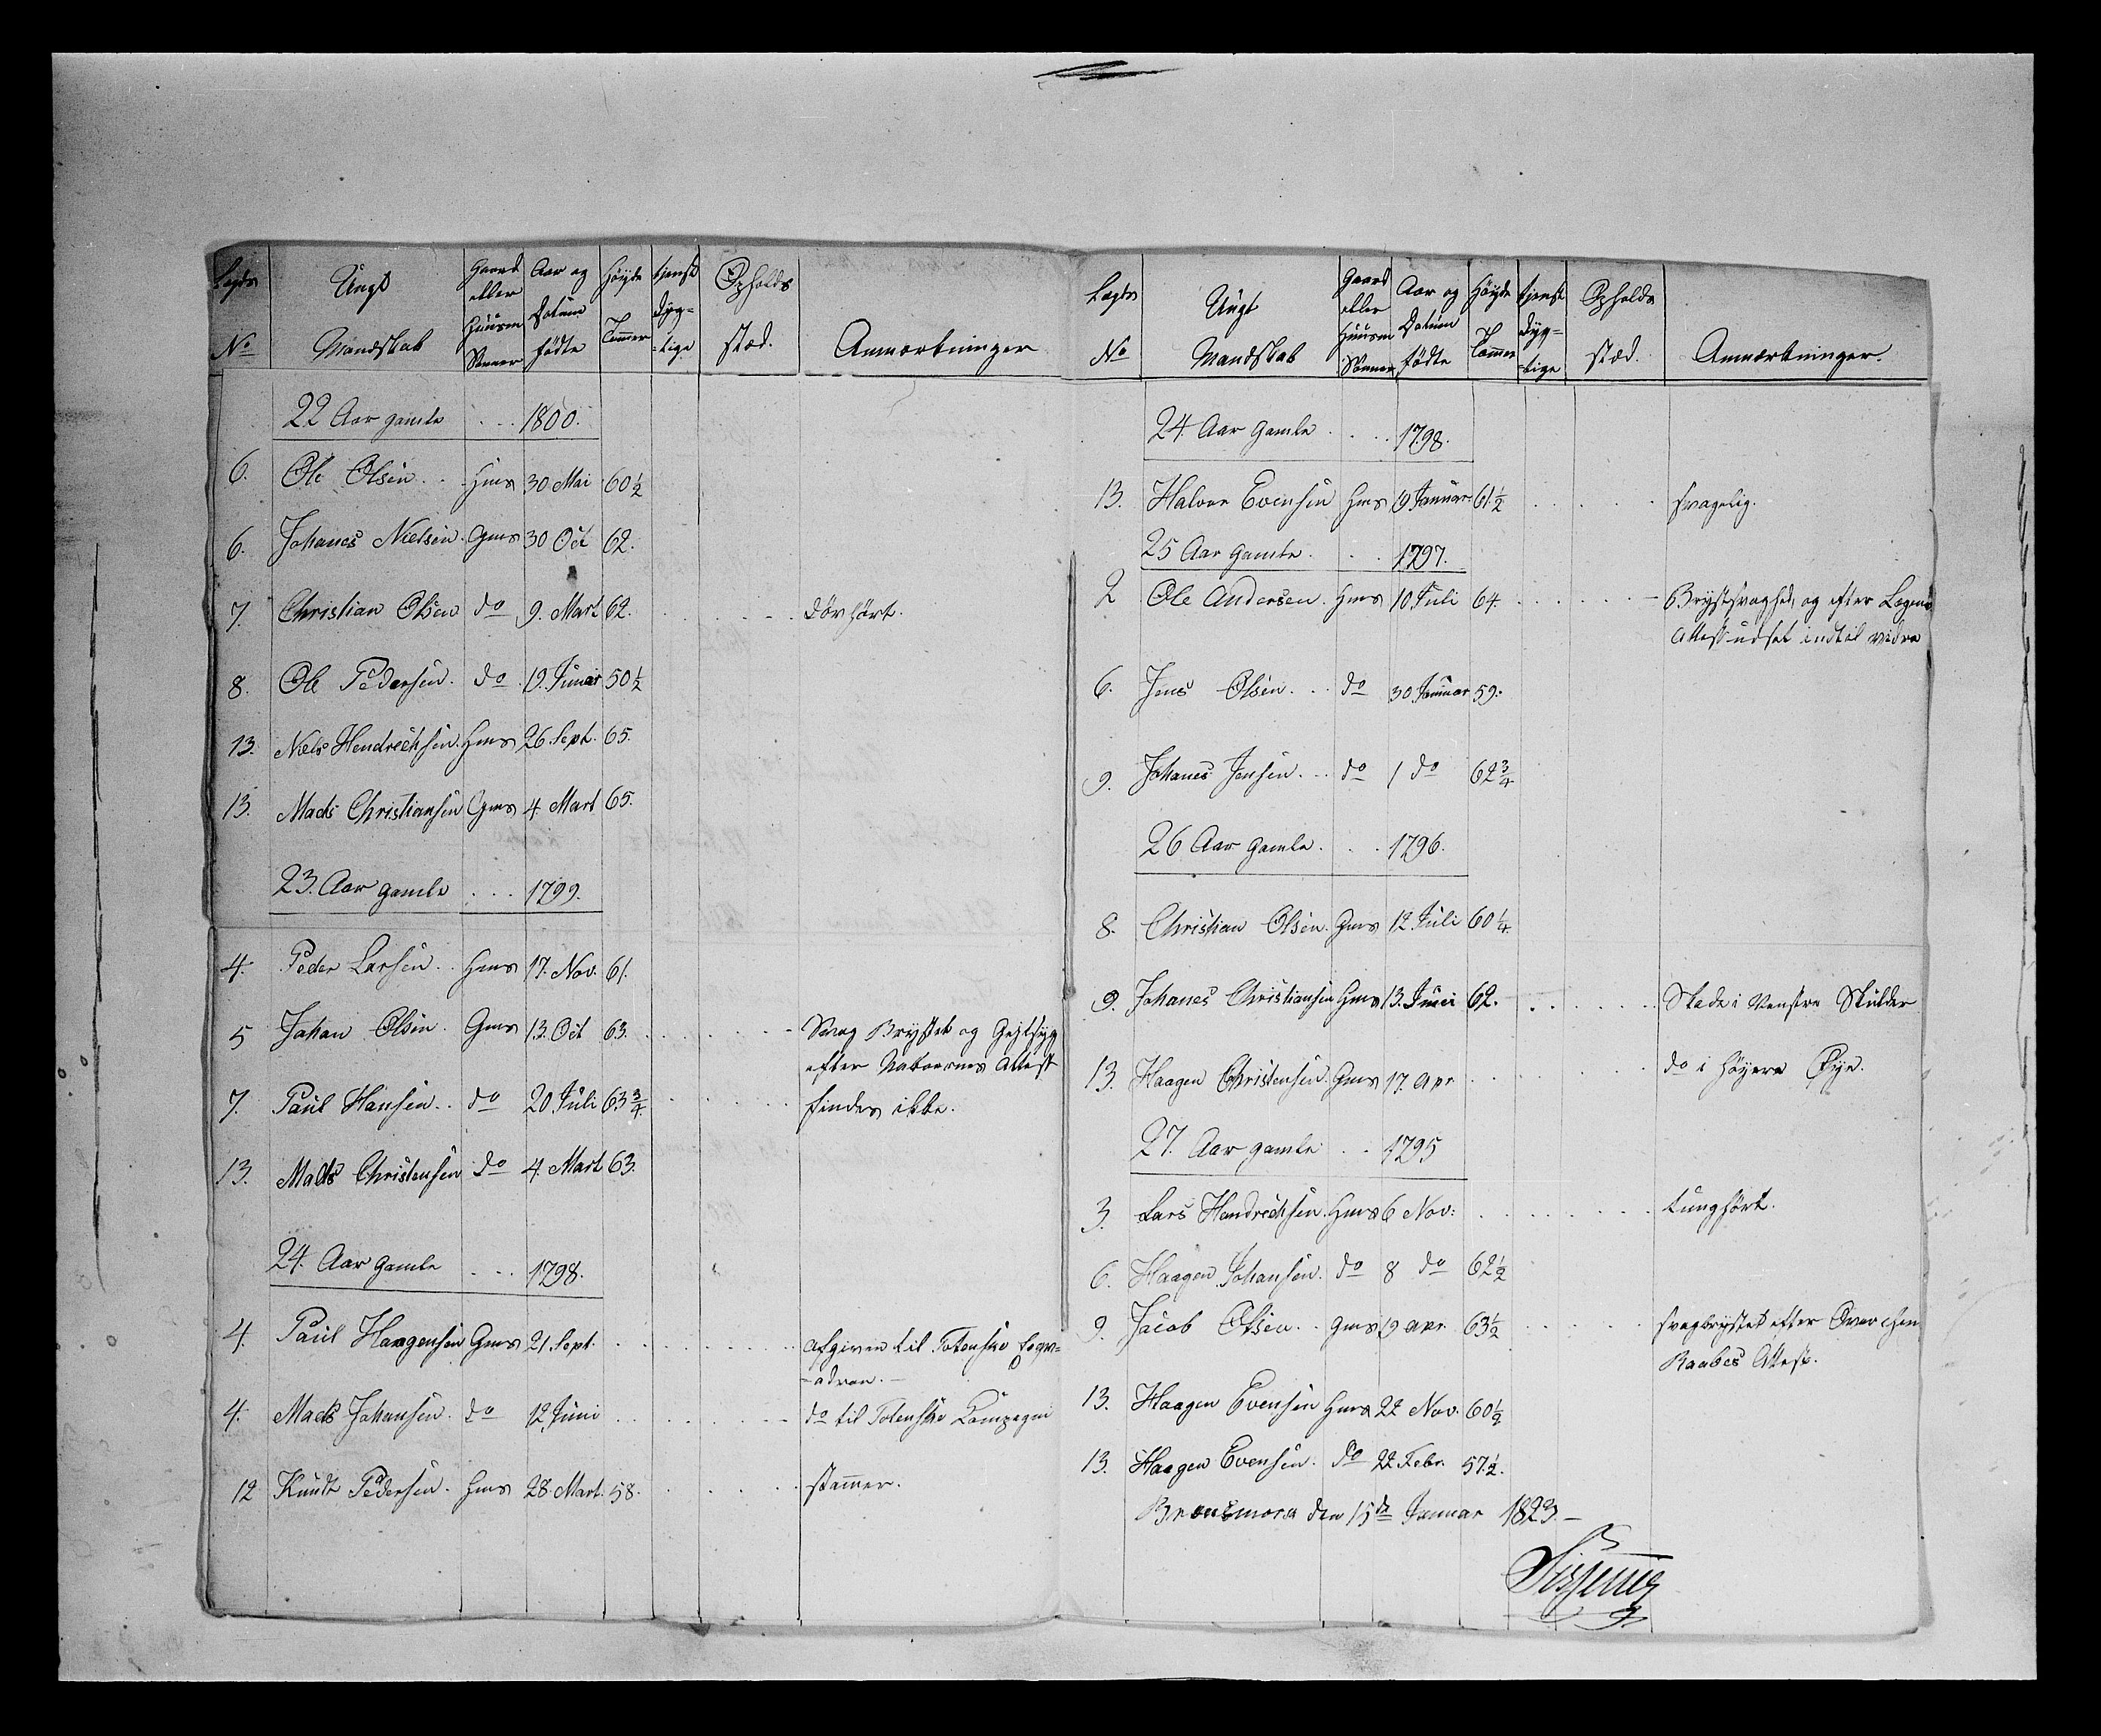 Lægds No | Ungt Mandskab | Gaard eller Huusm Sønner | Aar og Datum fødte | Høyde Tommer | tjenst dyg=tige | Opholds stæd. | Anmærkninger
22 Aar gamle . . . 1800.
6. Ole Olsen . . Hms 30 Mai 60½
6. Johanes Nielsen . Gms 30 Oct 62.
7. Christian Olsen do 9. Mart 62. . . . . døvhørt.
8. Ole Pedersen . do . 19. Junii 50½
13. Niels Hendrechsen . Hms 26. Sept. 65.
13. Mads Christiansen Gms 4. Mart 65.
23. Aar gamle . . . 1799.
4. Peder Larsen . . Hms 17. Nov. 61.
5 Johan Olsen . Gms 13. Oct 63. . . . . Svag Brystet og Gigtsyg
efter Attest
7. Paul Hansen . . do 20 Juli 63¾ . . . . findes ikke.
13. Mads Christensen do 4. Mart 63.
24. Aar gamle . . . 1798.
4. Paul Haagensen Gms 21 Sept. . . . . afgiven til Totenske Esqv=
=adron. —
4. Mads Johansen . do 12 Juni . . . . do til Totenske Compagni
12 Knudt Pedersen . Hms 28. Mart. 58. . . . . stammer.
Lægds No | Ungt Mandskab | Gaard eller Huusm Sønner | Aar og Datum fødte | Høyde Tommer | tjenst dyg=tige | Opholds stæd. | Anmærkninger.
24. Aar gamle . . . 1798.
13. Halvor Evensen Hms 19 Januar 61½ . . . . svagelig.
25 Aar gamle . . . 1797.
2 Ole Andersen . Hms 10 Juli 64. . . . . Brystsvaghed, og efter Lægens
Attest udsat indtil vidre
6. Jens Olsen . . do 30 Januar 59.
9. Johanes Jensen . . do 1 do 62¾
26 Aar gamle . . . 1796.
8. Christian Olsen . Gms 12 Juli 60¼
9. Johanes Christiansen Hms 13. Junii 62. . . . . Skade i Venstre Skulder
13. Haagen Christensen . Gms 17. Apr . . . . do i høyere Øye.
27. Aar gamle . . 1795
3. Lars Hendrechsen . Hms 6 Nov: . . . . tunghørt.
6. Haagen Johansen . do 8 do 62½
9. Jacob Olsen . . Gms 19 Apr 63½ . . . . svagbrystet efter
Raabes Attest.
13. Haagen Evensen Hms 22 Nov. 60½
13. Haagen Evensen . do 22 Febr. 57½.
den 15de Januar 1823. —